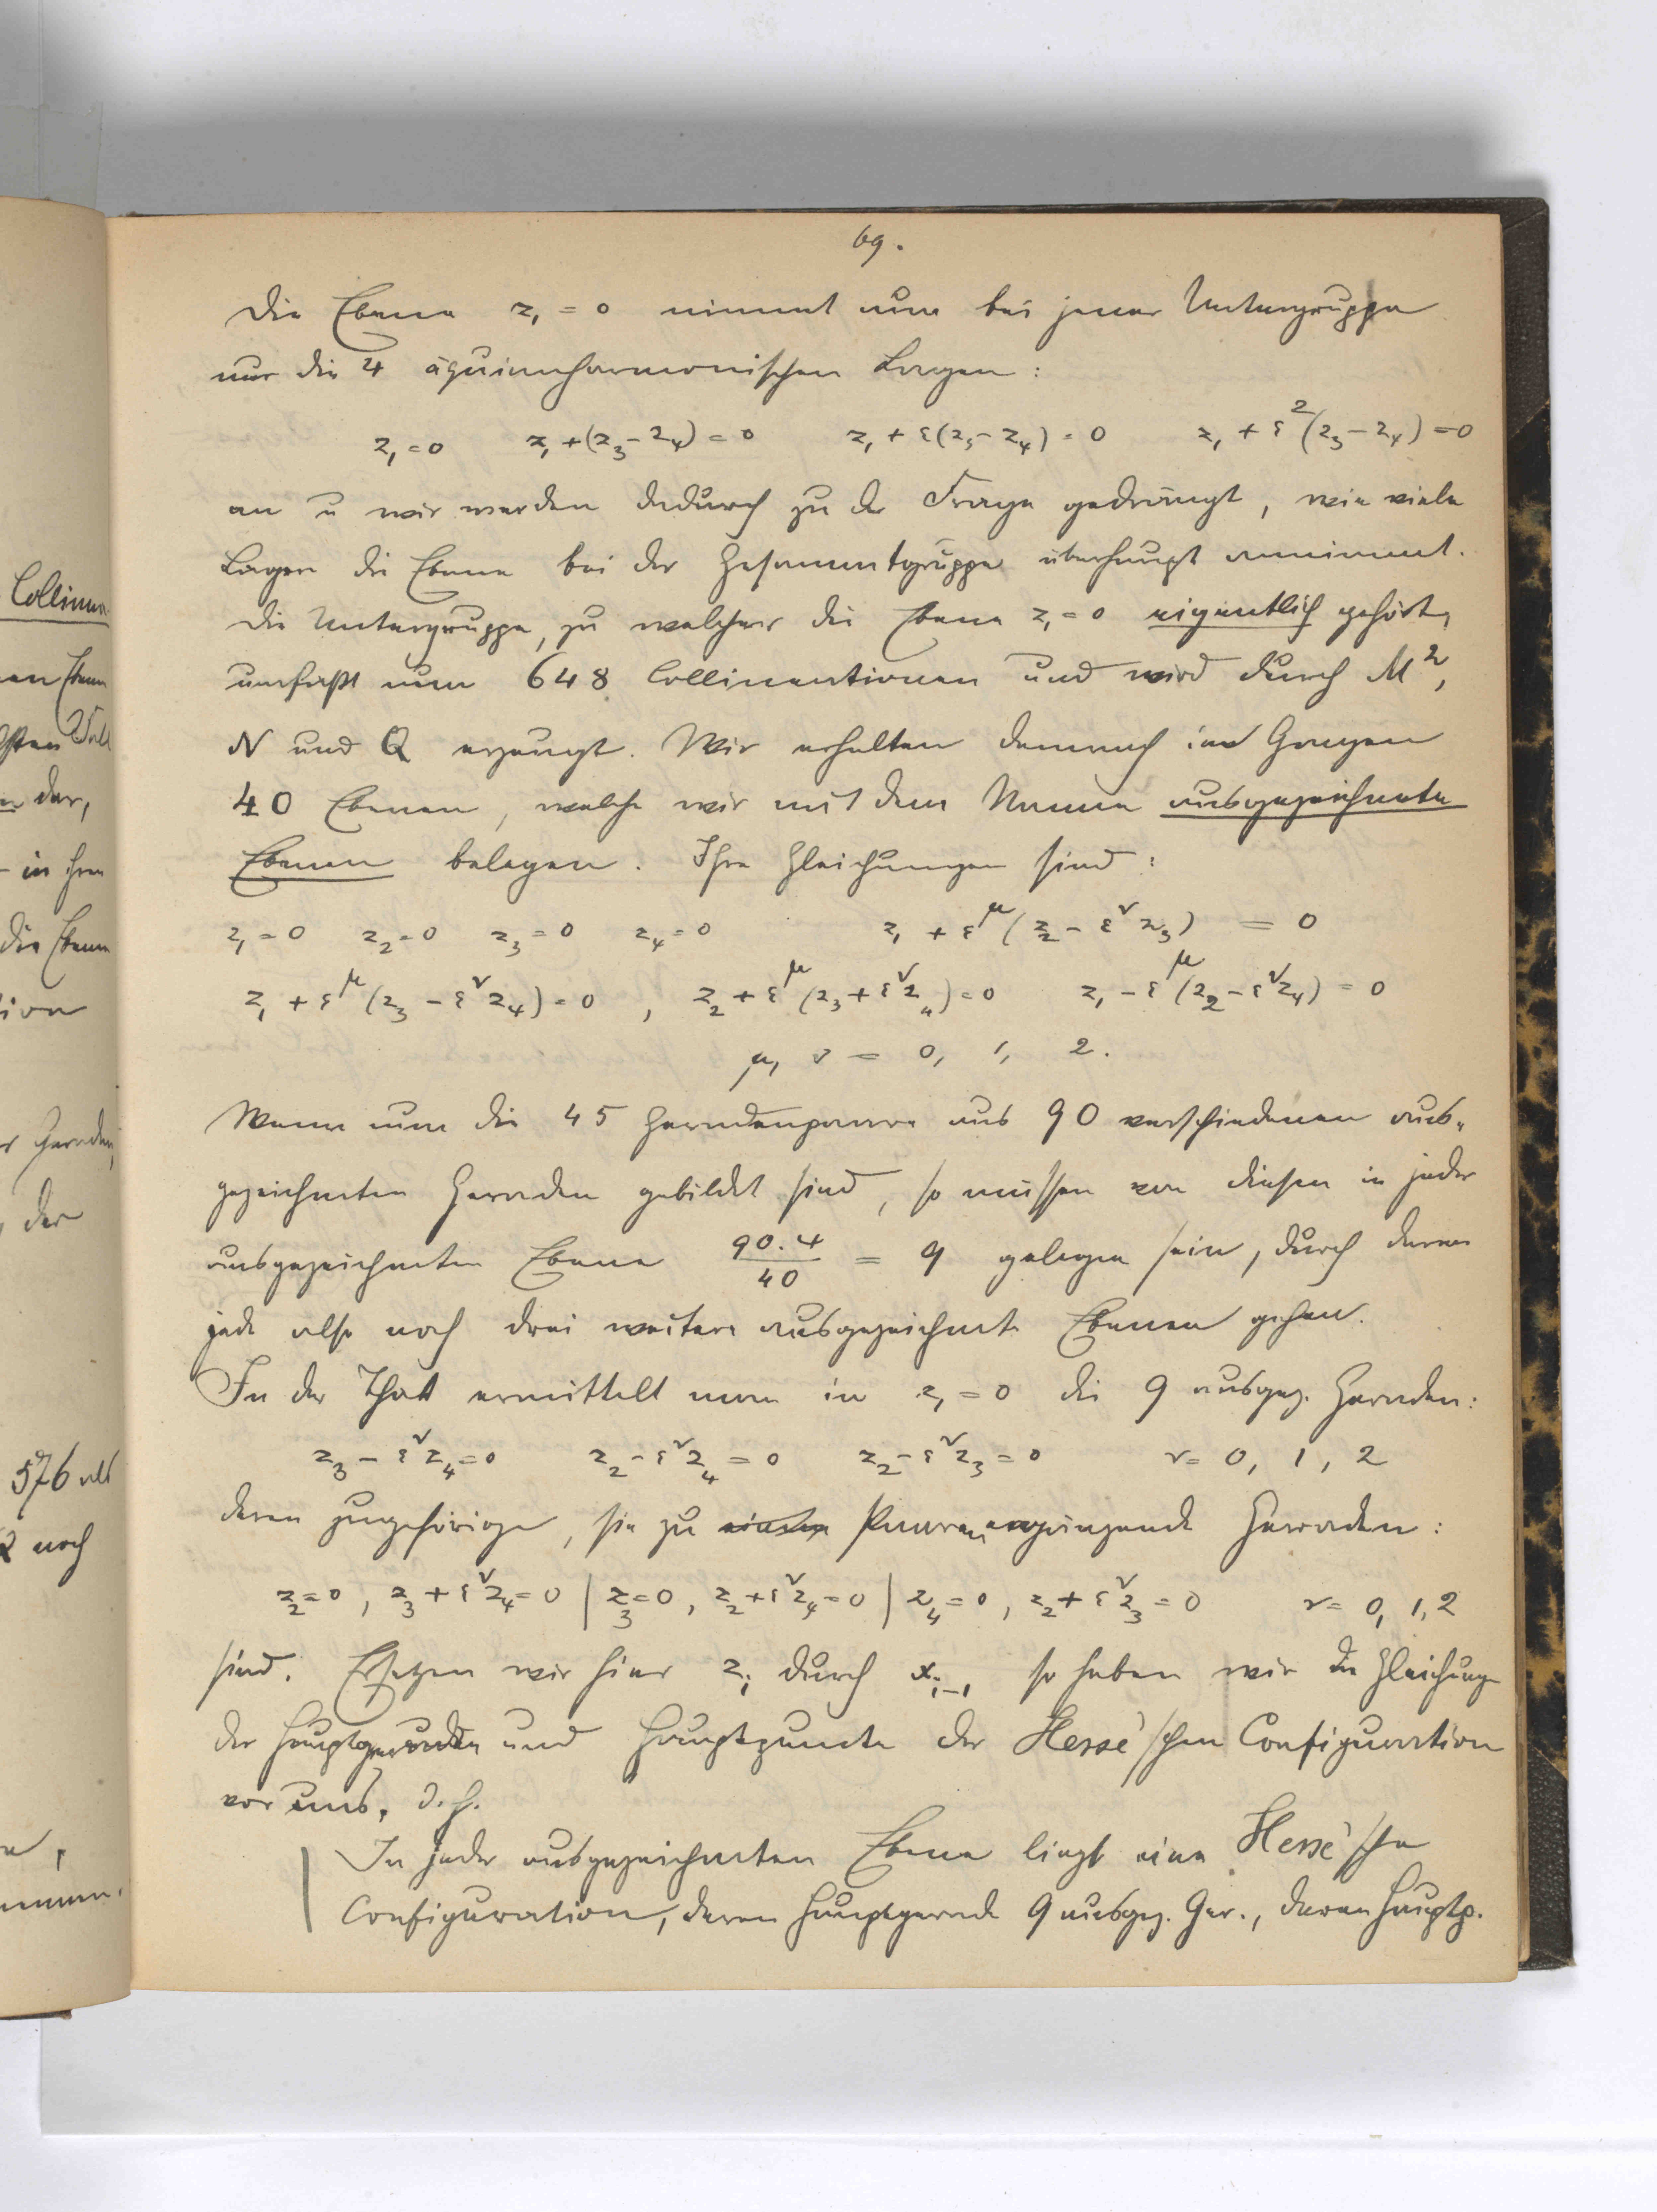 69.
Die Ebene z₁ = 0 nimmt nun bei jener Untergruppe
nur die 4 äquianharmonischen Lagen:
z₁ = 0 z₁ + (z₃ − z₄) = 0 z₁ + ε(z₃ − z₄) = 0 z₁ + ε²(z₃ − z₄) = 0
an u wir werden dadurch zu der Frage gedrängt, wie viele
Lagen die Ebene bei der Gesammtgruppe überhaupt annimmt.
Die Untergruppe, zu welcher die Ebene z₁ = 0 eigentlich gehört,
umfaßt nun 648 Collineationen und wird durch M²,
N und Q erzeugt. Wir erhalten demnach im Ganzen
40 Ebenen, welche wir mit dem Namen ausgezeichnete
Ebenen belegen. Ihre Gleichungen sind:
z₁ = 0 z₂ = 0 z₃ = 0 z₄ = 0 z₁ + ε^μ (z₂ − ε^ν z₃) = 0
z₁ + ε^μ (z₃ − ε^ν z₄) = 0, z₂ + ε^μ (z₃ + ε^ν z₄) = 0 z₁ − ε^μ (z₂ − ε^ν z₄) = 0
μ, ν = 0, 1, 2.
Wenn nun die 45 Geradenpaare aus 90 verschiedenen aus-
gezeichneten Geraden gebildet sind, so müssen von diesen in jeder
ausgezeichneten Ebene 90.4/40 = 9 gelegen sein, durch deren
jede also noch drei weitere ausgezeichnete Ebenen gehen.
In der That ermittelt man in z₁ = 0 die 9 ausgez. Geraden:
z₃ − ε^ν z₄ = 0 z₂ − ε^ν z₄ = 0 z₂ − ε^ν z₃ = 0 ν = 0, 1, 2
deren zugehörige, sie zu Paaren ergänzende Geraden:
z₂ = 0, z₃ + ε^ν z₄ = 0 | z₃ = 0, z₂ + ε^ν z₄ = 0 | z₄ = 0, z₂ + ε^ν z₃ = 0 ν = 0, 1, 2
sind. Ersetzen wir hier zᵢ durch xᵢ₋₁ so haben wir die Gleichung
der Hauptgeraden und Hauptpuncte der Hesse'schen Configuration
vor uns, d. h.
In jeder ausgezeichneten Ebene liegt eine Hesse'sche
Configuration, deren Hauptgerade 9 ausgez. Ger., deren Hauptp.
Collinea
Ebene
dar,
in ihr
die Ebene
tion
Geraden,
der
576 als
noch